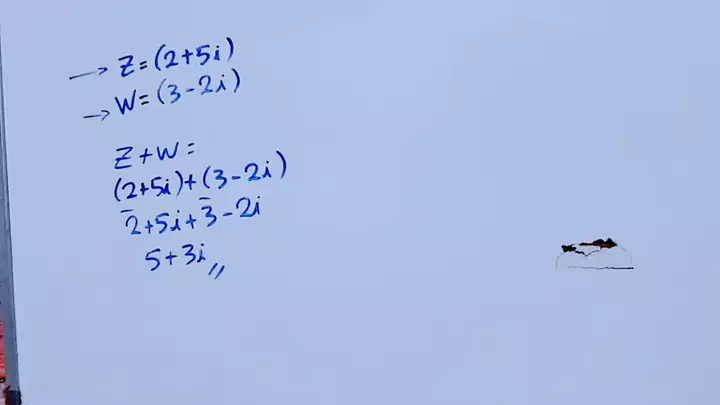 → Z = (2+5i)
→ W = (3-2i)
Z+W =
(2+5i)+(3-2i)
2+5i+3-2i
5+3i,,